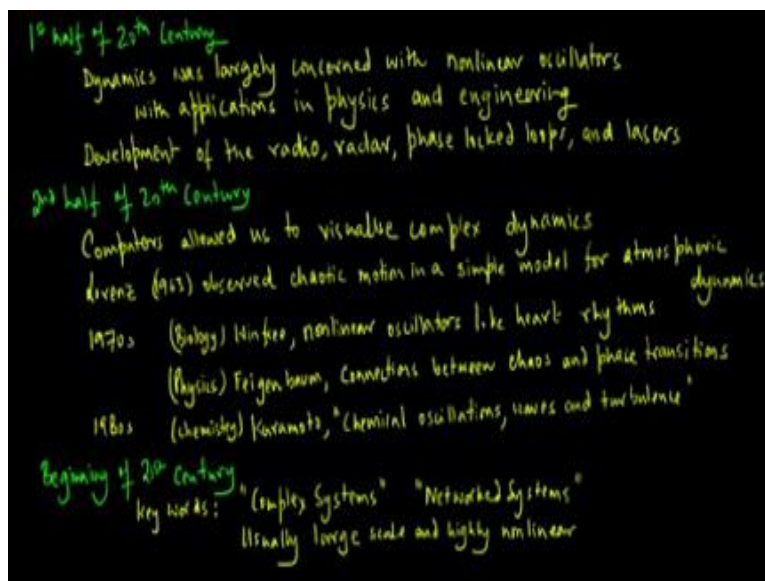 1st half of 20th Century
Dynamics was largely concerned with nonlinear oscillators
with applications in physics and engineering
Development of the radio, radar, phase locked loops, and lasers
2nd half of 20th Century
Computers allowed us to visualise complex dynamics
Lorenz (1963) observed chaotic motion in a simple model for atmospheric
dynamics
1970s (Biology) Winfree, nonlinear oscillators like heart rhythms
(Physics) Feigenbaum, Connections between chaos and phase transitions
1980s (Chemistry) Kuramoto, "Chemical oscillations, waves and turbulence"
Beginning of 21st Century
Key words: "Complex Systems" "Networked Systems"
Usually large scale and highly nonlinear